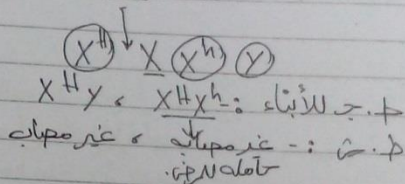 X^H X X^h Y
ط.ج للأبناء : X^H X^h ، X^H Y
ط.ش :- غير مصابة ، غير مصاب
حاملة للمرض.